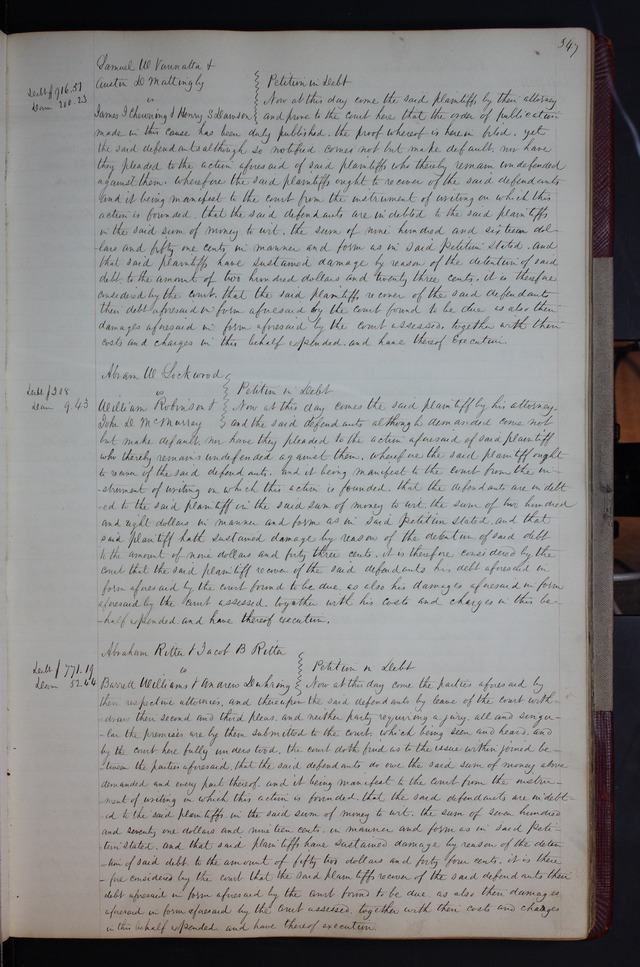 347
Samuel W Vannatta &
Austin D Mattingly
Petition in Debt
Debt $916.51
Dam 200.23
vs
Now at this day come the said plaintiffs by their attorney
James I Chowning & Henry S Dawson
and prove to the court here that the order of publication
made in this cause has been duly published. the proof whereof is herein filed. yet
the said defendants although so notified comes not but make default. nor have
they pleaded to the action aforesaid of said plaintiffs who thereby remain undefended
against them. wherefore the said plaintiffs ought to recover of the said defendants
and it being manifest to the court from the instrument of writing on which this
action is founded. that the said defendants are indebted to the said plaintiffs
in the said sum of money to wit. the sum of nine hundred and sixteen dol-
-lars and fifty one cents in manner and form as in said Petition stated. and
that said plaintiffs have sustained damage by reason of the detention of said
debt to the amount of two hundred dollars and twenty three cents. it is therefore
considered by the court. that the said plaintiffs recover of the said defendants
their debt aforesaid in form aforesaid by the court found to be due as also their
damages aforesaid in form aforesaid by the court assessed. together with their
costs and charges in this behalf expended. and have thereof Execution.
Abram W Lockwood
Debt $208
Dam 9.43
vs
Petition in Debt
William Robinson &
Now at this day comes the said plaintiff by his attorney.
John D McMurray
and the said defendants although demanded come not
but make default. nor have they pleaded to the action aforesaid of said plaintiff
who thereby remains undefended against them. wherefore the said plaintiff ought
to recover of the said defendants. and it being manifest to the court from the in-
-strument of writing on which this action is founded. that the defendants are indebt
-ed to the said plaintiff in the said sum of money to wit. the sum of two hundred
and eight dollars in manner and form as in said Petition stated. and that
said plaintiff hath sustained damage by reason of the detention of said debt
to the amount of nine dollars and forty three cents. it is therefore considered by the
court that the said plaintiff recover of the said defendants his debt aforesaid in
form aforesaid by the court found to be due. as also his damages aforesaid in form
aforesaid by the court assessed together with his costs and charges in this be-
-half expended and have thereof execution.
Abraham Ritter & Jacob B Ritter
Debt $771.19
Dam 52.44
vs
Petition in Debt
Barrett Williams & Andrew
Now at this day come the parties aforesaid by
their respective attornies. and thereupon the said defendants by leave of the court with-
-draws their second and third pleas. and neither party requiring a jury. all and singu-
-lar the premises are by them submitted to the court. which being seen and heard. and
by the court here fully understood. the court doth find as to the issue within joined be-
-tween the parties aforesaid. that the said defendants do owe the said sum of money above
demanded and every part thereof. and it being manifest to the court from the instru-
-ment of writing on which this action is founded. that the said defendants are indebt-
-ed to the said plaintiffs in the said sum of money to wit. the sum of seven hundred
and seventy one dollars and nineteen cents. in manner and form as in said Peti-
-tion stated. and that said plaintiffs have sustained damage by reason of the deten-
-tion of said debt. to the amount of fifty two dollars and forty four cents. it is there
-fore considered by the court that the said plaintiffs recover of the said defendants their
debt aforesaid in form aforesaid by the court found to be due. as also their damages
aforesaid in form aforesaid by the court assessed. together with their costs and charges
in this behalf expended and have thereof execution.